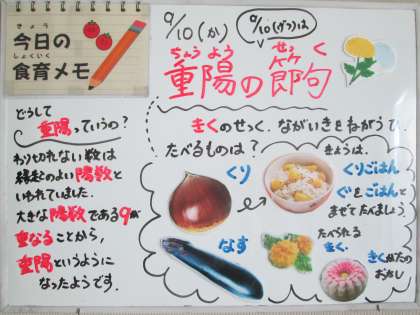 きょう
今日の
しょくいく
食育メモ
9/10(か)
9/10(げつ)は
ちょうよう
せっく
重陽の節句
きくのせっく。ながいきをねがう。
たべるものは？
どうして
重陽っていうの？
わりきれない数は
縁起のよい陽数と
いわれていました。
大きな陽数である9が
重なることから、
重陽というように
なったようです。
くり
なす
きょうは、
くりごはん
ぐをごはんと
まぜてたべましょう。
たべられる
きく
きくかたの
おかし